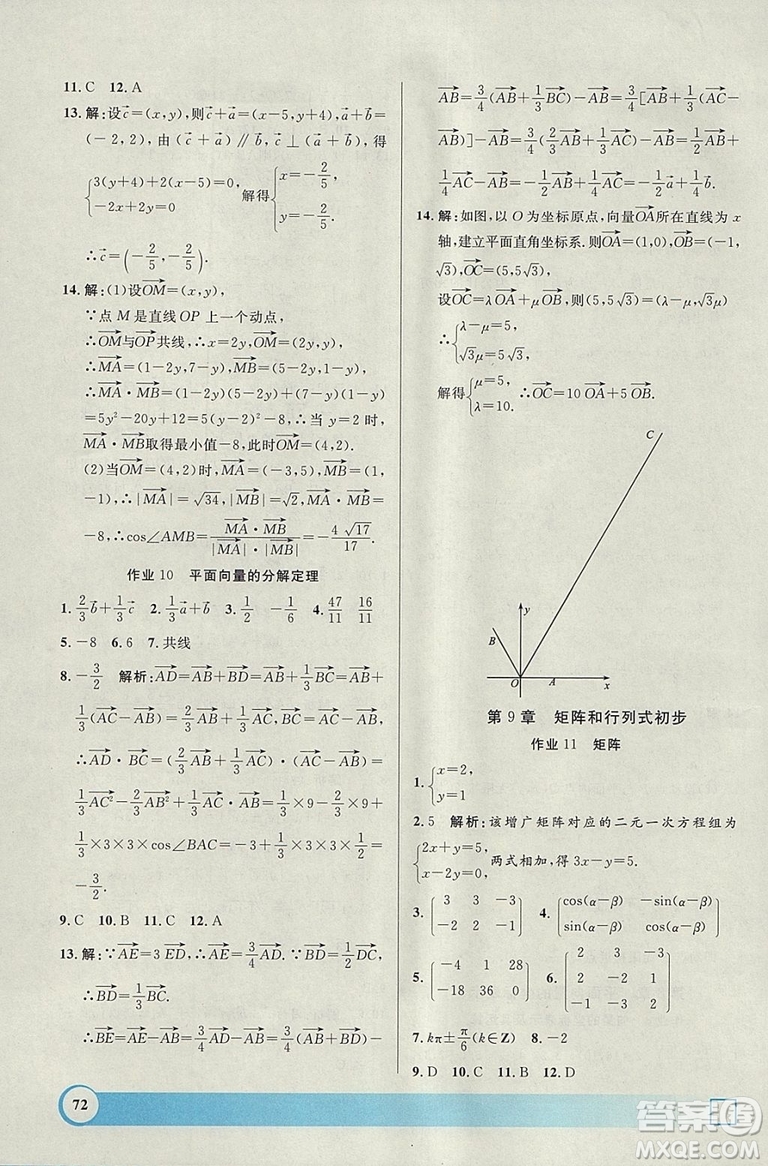 11. C 12. A
13. 解:设c⃗=(x,y),则c⃗+a⃗=(x-5,y+4),b⃗+a⃗
=(-2,2),由(c⃗+a⃗)∥b⃗,c⃗⊥(b⃗+a⃗),得
{3(y+4)+2(x-5)=0, -2x+2y=0 解得{x=-2/5, y=-2/5.
∴c⃗=(-2/5,-2/5).
14. 解:(1)设OM→=(x,y),
∵点M是直线OP上一个动点,
∴OM→与OP→共线,∴x=2y,OM→=(2y,y),
∴MA→=(1-2y,7-y),MB→=(5-2y,1-y),
∴MA→·MB→=(1-2y)(5-2y)+(7-y)(1-y)
=5y²-20y+12=5(y-2)²-8,∴当y=2时,
MA→·MB→取得最小值-8,此时OM→=(4,2).
(2)当OM→=(4,2)时,MA→=(-3,5),MB→=(1,
-1),∴|MA→|=√34,|MB→|=√2,MA→·MB→=
-8,∴cos∠AMB=MA→·MB→/|MA→|·|MB→|=-4√17/17.
作业10 平面向量的分解定理
1. 2/3b⃗+1/3c⃗ 2. 1/3a⃗+b⃗ 3. 1/2 -1/6 4. 47/11 16/11
5. -8 6. 6 7. 共线
8. -3/2 解析:AD→=AB→+BD→=AB→+1/3BC→=AB→+
1/3(AC→-AB→)=2/3AB→+1/3AC→,BC→=AC→-AB→,
∴AD→·BC→=(2/3AB→+1/3AC→)·(AC→-AB→)=
1/3AC→²-2/3AB→²+1/3AB→·AC→=1/3×9-2/3×9+
1/3×3×3×cos∠BAC=-3+1/3×3×3×1/2=
-3/2.
9. C 10. B 11. C 12. A
13. 解:∵AE→=3ED→,∴AE→=3/4AD→.∵BD→=1/2DC→,
∴BD→=1/3BC→.
∴BE→=AE→-AB→=3/4AD→-AB→=3/4(AB→+BD→)-
AB→=3/4(AB→+1/3BC→)-AB→=3/4[AB→+1/3(AC→-
AB→)]-AB→=3/4AB→+1/4AC→-1/4AB→-AB→=
1/4AC→-1/2AB→=-1/2a⃗+1/4b⃗.
14. 解:如图,以O为坐标原点,向量OA→所在直线为x
轴,建立平面直角坐标系.则OA→=(1,0),OB→=(-1,
√3),OC→=(5,5√3).
设OC→=λOA→+μOB→,
∴{λ-μ=5, √3μ=5√3,
解得{μ=5, λ=10. ∴OC→=10OA→+5OB→.
C
y
B
O A x
第9章 矩阵和行列式初步
作业11 矩阵
1. {x=2, y=1
2. 5 解析:该增广矩阵对应的二元一次方程组为
{2x+y=5, x-2y=0, 两式相加,得3x-y=5.
3. (3 3 -3; -2 2 -1) 4. (cos(α-β) -sin(α-β); sin(α-β) cos(α-β))
5. (-4 1 28; -18 36 0) 6. (2 3 -3; 2 -2 1; -1 -3 2)
7. kπ±π/6(k∈Z) 8. -2
9. D 10. C 11. B 12. D
72
答案圈
MXQE.COM